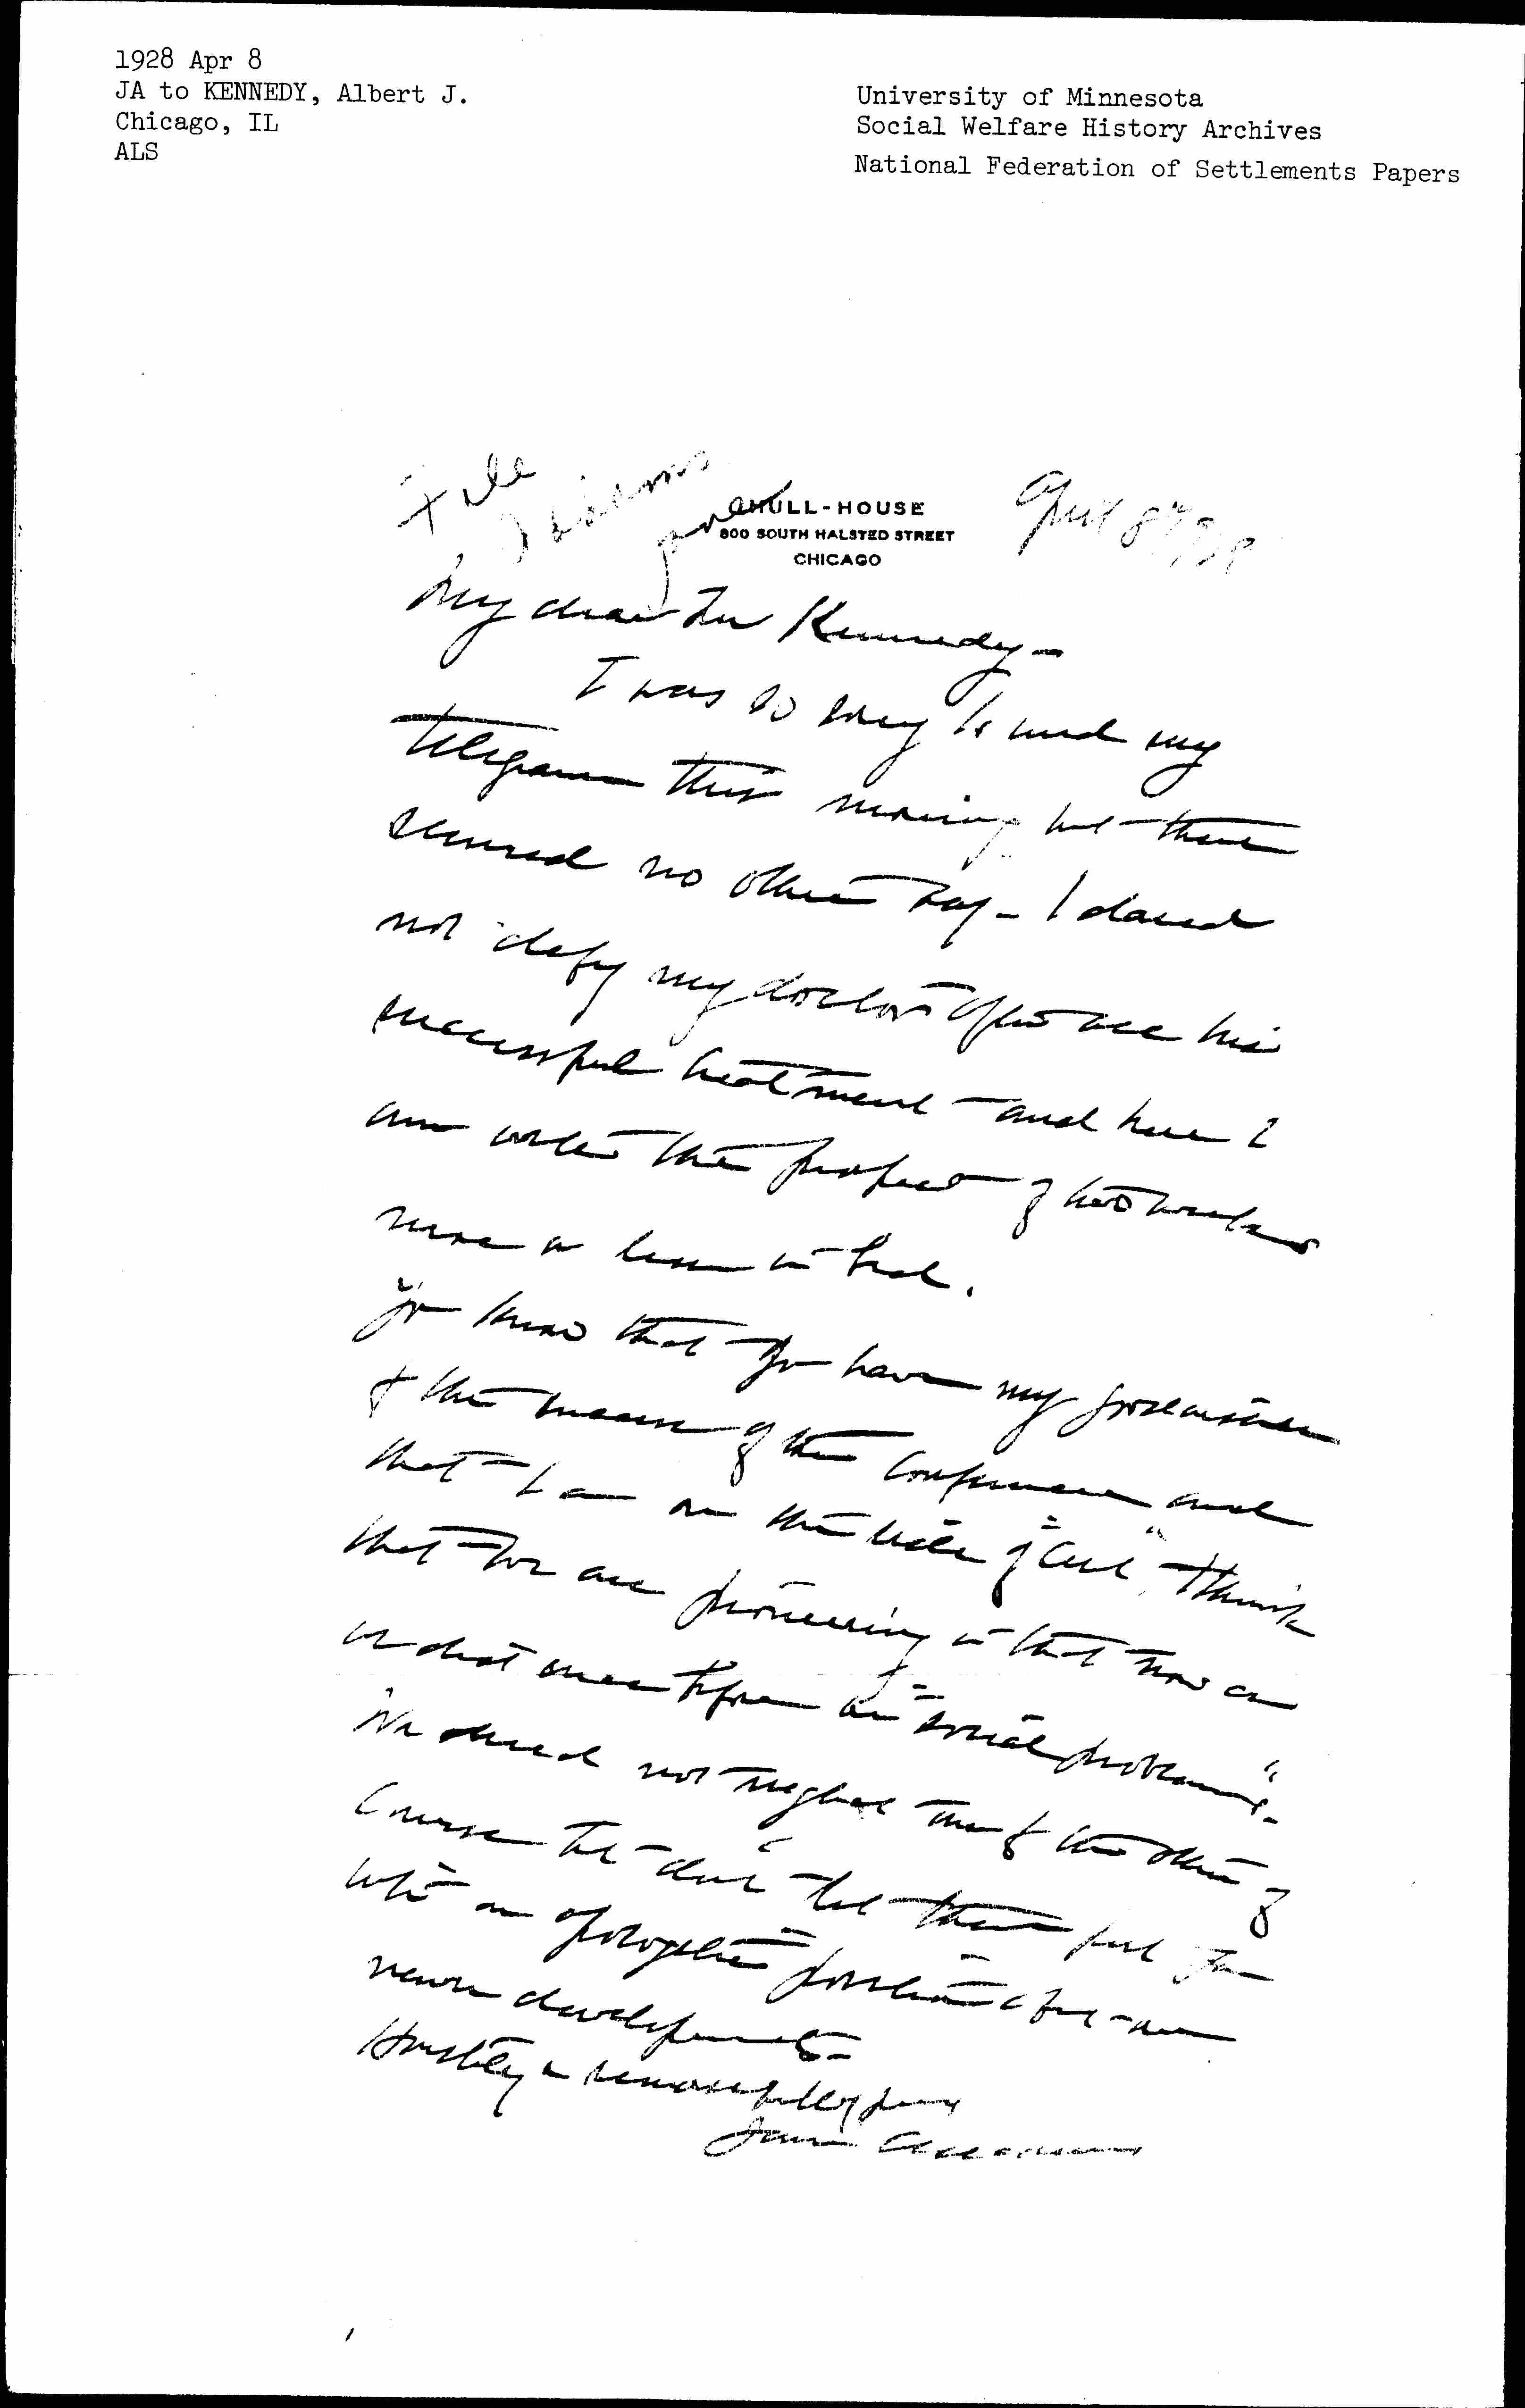 1928 Apr 8
JA to KENNEDY, Albert J.
Chicago, IL
ALS
University of Minnesota
Social Welfare History Archives
National Federation of Settlements Papers
File
Addams
Jane
HULL-HOUSE
800 SOUTH HALSTED STREET
CHICAGO
April 8" 1928
My dear Mr Kennedy -
I was so sorry to send my
telegram this morning but there
seemed no other way - I dared
not defy my doctor after all his
successful treatment - and here I
am under the prospect of two weeks
more or less in bed.
You know that you have my good wishes
for the success of the Conference and
that I am on the side of "Art", I think
that we are pioneering in that now as
we did once before in "social problems" -
We should not neglect one for the other of
course but don't let them put you
into an apologetic position for our
newer developments -
Hastily & remorsefully yours
Jane Addams